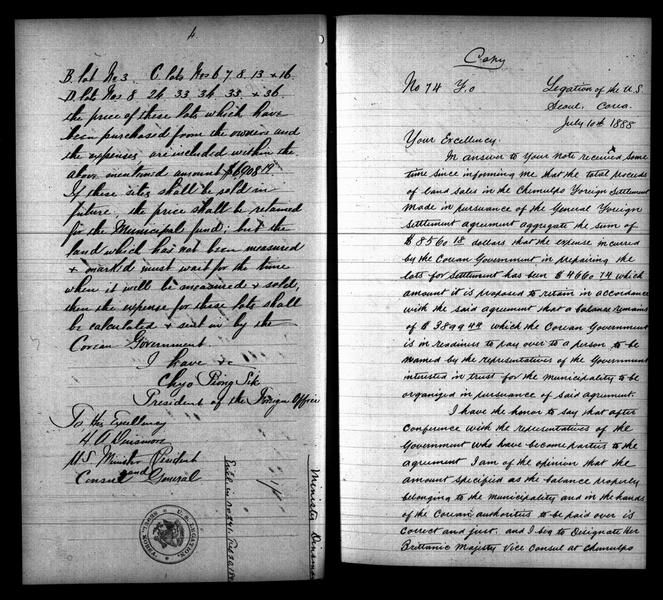 4
B. lot No 3 C lots Nos 6 7 8 13 + 16
D. lots Nos 8 26 33 36 33 + 36
the price of these lots which have
been purchased from the owners and
the expenses are included within the
above mentioned amount
If these sites shall be sold in
future: the price shall be retained
for the Municipal fund; but the
land which has not been measured
+ marked must wait for the time
when it will be measured + sold,
then the expense for these lots shall
be calculated + sent in by the
Corean Government
I have &c
Chyo Piong Sik
President of the Foreign Office
To His Excellency
H. A. Dinsmore
U.S. Minister Resident
and
Consul General
U.S. LEGATION. SEOUL, KOREA
Minister Dinsmo
Copy
No 74 F.O
Legation of the U.S
Seoul. Corea.
July 10th 1888
Your Excellency.
In answer to Your note received some
time since informing me that the total proceeds
of land sales in the Chemulpo Foreign Settlement
made in pursuance of the General Foreign
settlement agreement aggregate the sum of
$8560 18 dollars that the expense incurred
by the Corean Government in preparing the
lots for settlement has been $4660 74 which
amount it is proposed to retain in accordance
with the said agreement that a balance remains
of $3899 44 which the Corean Government
is in readiness to pay over to a person to be
named by the representatives of the Government
interested in trust for the municipality to be
organized in pursuance of said agreement.
I have the honor to say that after
conference with the representatives of the
Government who have become parties to the
agreement I am of the opinion that the
amount specified as the balance properly
belonging to the municipality and in the hands
of the Corean authorities to be paid over is
correct and just. and I beg to Designate Her
Brittanic Majesty Vice Consul at Chemulpo